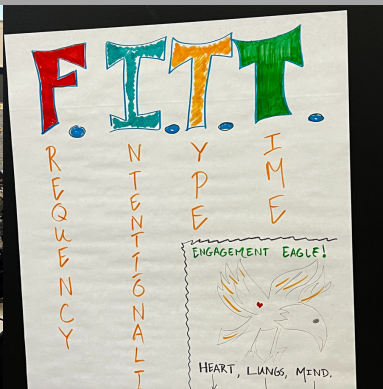 F. I. T. T.
REQUENCY
NTENTIONALI
YPE
IME
ENGAGEMENT EAGLE!
HEART, LUNGS, MIND.